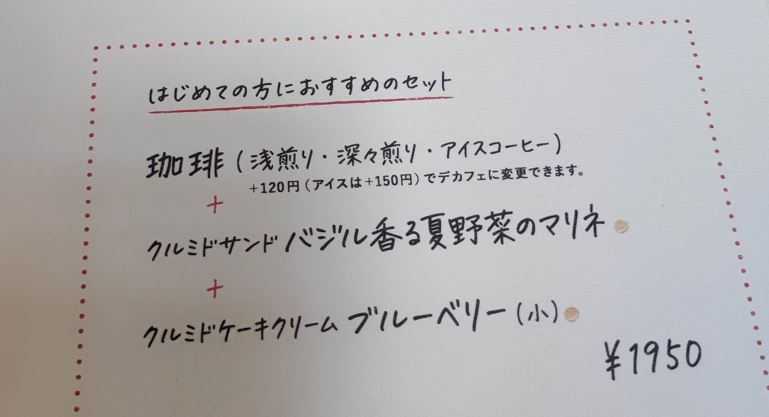 はじめての方におすすめのセット
珈琲（浅煎り・深々煎り・アイスコーヒー）
+120円（アイスは+150円）でデカフェに変更できます。
+
クルミドサンド バジル香る夏野菜のマリネ
+
クルミドケーキクリーム ブルーベリー（小）
¥1950